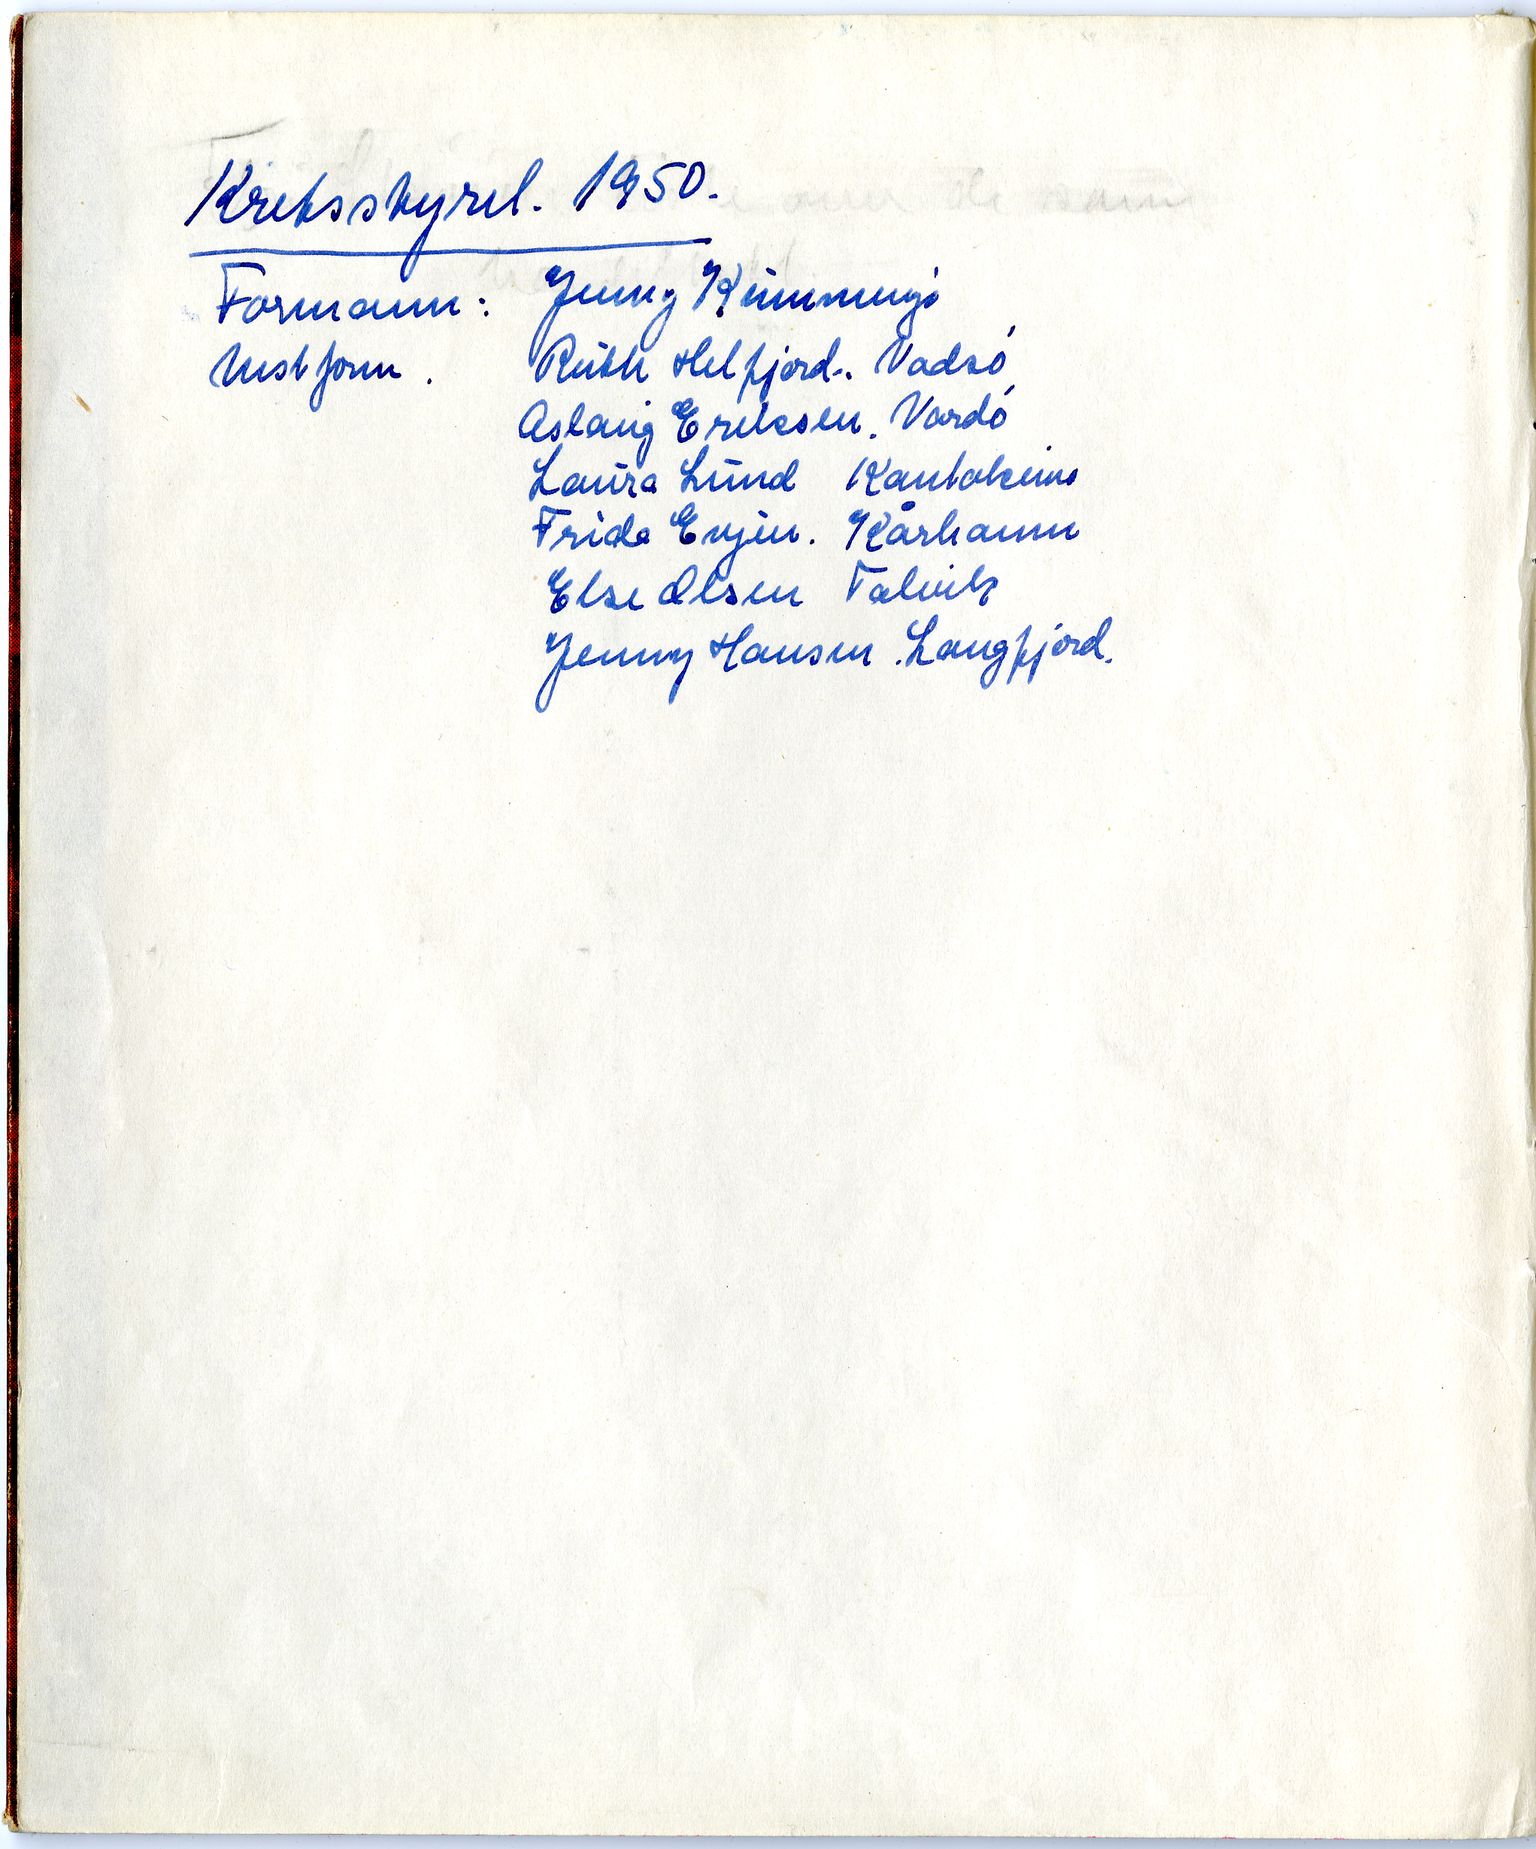 Kretsstyrel. 1950.
Formann: Jenny
Nestform. Ruth Helfjord. Vadsö
Aslaug Eriksen. Vardö
Laura Lund Kautokeino
Frida Evjen. Kårhamn
Else Olsen Talvik
Jenny Hansen. Langfjord.